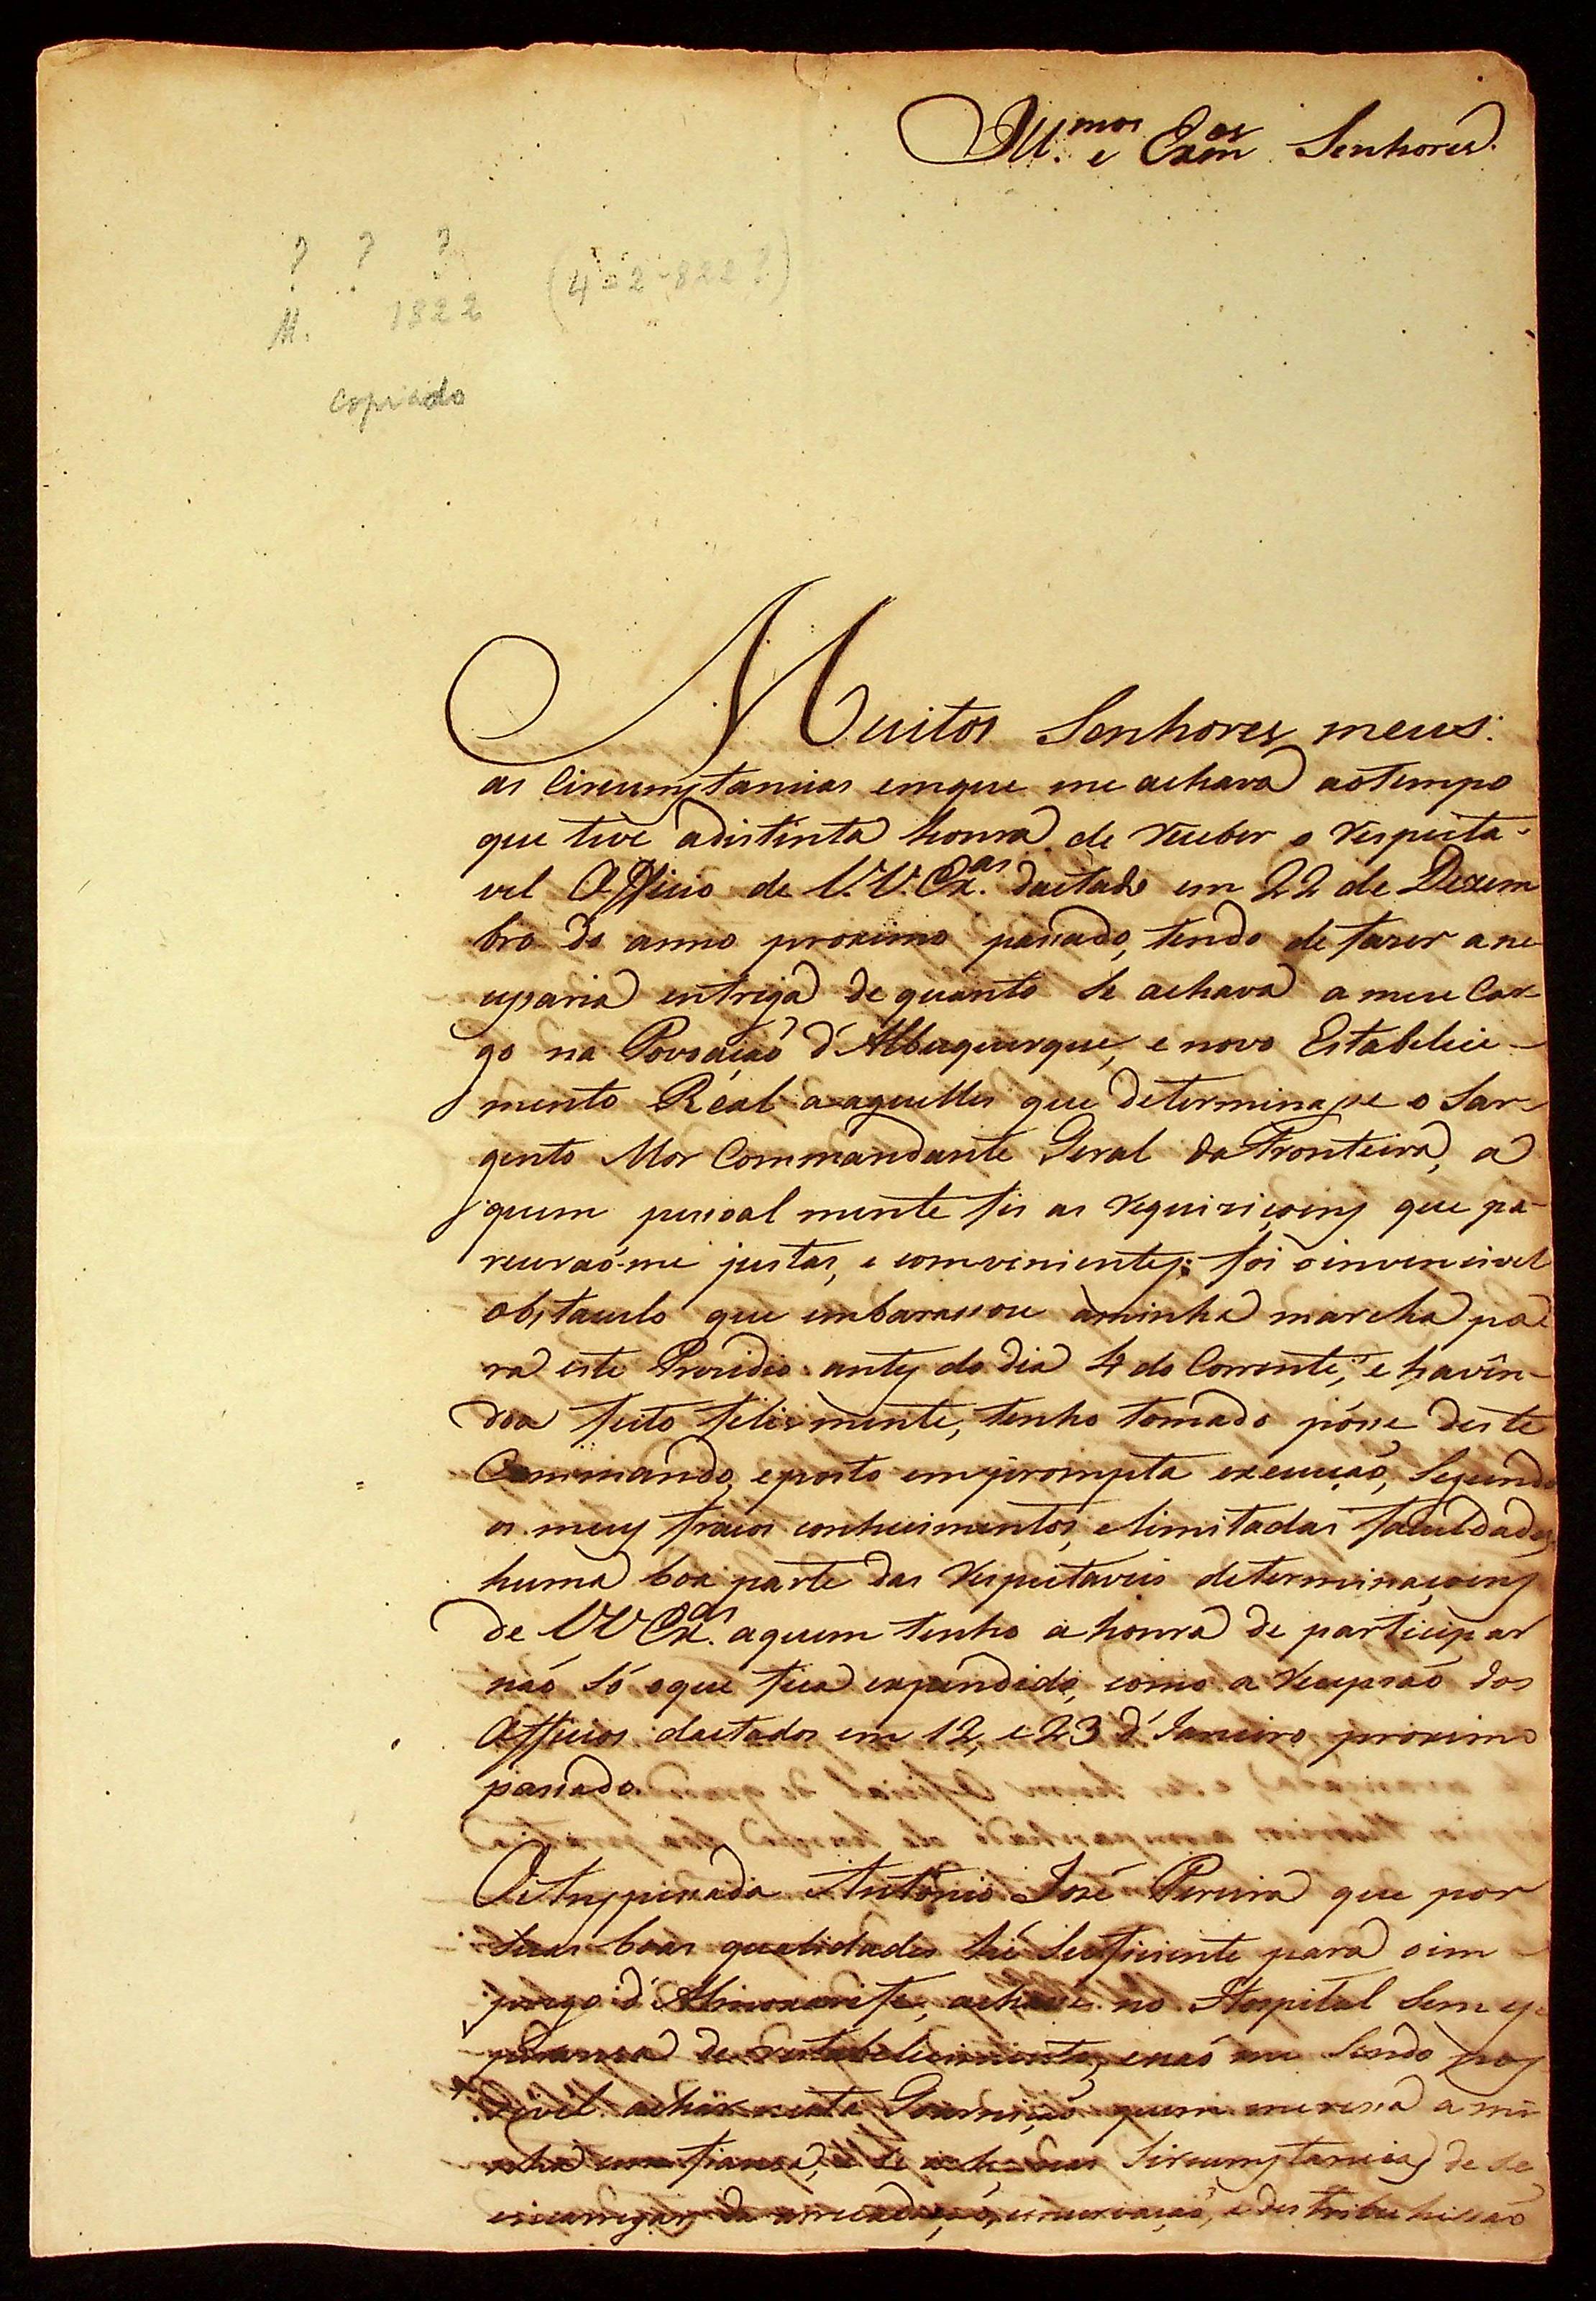 Ill.mos e Exm.os Senhores.
? ? ?
M. 1822 (4-2-822?)
Copiado
Muitos Senhores meus:
as Circumstancias emque me achava aotempo
que tive adistinta honra de receber o respeita-
vel Officio de V.V. Ex.as dactado em 22 de Dezem
bro do anno proximo passado, tendo de fazer a ne-
cessaria entrega de quanto se achava a meu Car-
go na Povoação d'Albuquerque, e novo Estabelici-
mento Real a aquelles que determinasse o Sar-
gento Mor Commandante Geral da Fronteira, a
quem pessoal mente fis as requiziçoens que pa-
receraó-me justas, e comvenientes: foi o invencivel
obstaculo que embarassou a minha marcha pa-
ra este Prezidio antes do dia 4 do Corrente, e havîn-
doa feito felismente, tenho tomado pósse deste
Commando, eposto em prompta execução, Segundo
os meus fracos conhecimentos, elimitadas faculdades,
huma boa parte das respeitaveis determinaçoens
de VV Ex.as aquem tenho a honra de participar
não só oque fica expendido, como a recepsaõ dos
Officios dactados em 12, e 23 d'Janeiro proximo
passado.
O Anspessada Antônio José Pereira que por
Suas boas qualidades hé Sufficiente para o im-
prego d'Almoxarife, achase no Hospital Sem es
peransa de restabelecimento, enaó me Sendo pos
Sivel achar nesta Guarnição quem meresa a mi
nha comfiansa, e se ache nas Sircumstancias de se
encarregar da arrecadação, comcervação, e destribuhissaõ